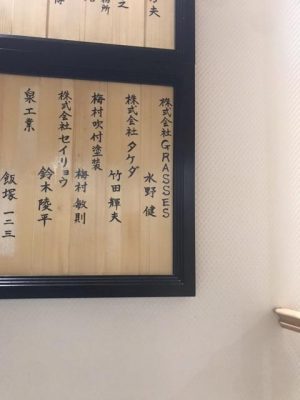 株式会社GRASSES
水野 健
株式会社タケダ
竹田 輝夫
梅村吹付塗装
梅村 敏則
株式会社セイリョウ
鈴木 陵平
泉工業
飯塚 一二三